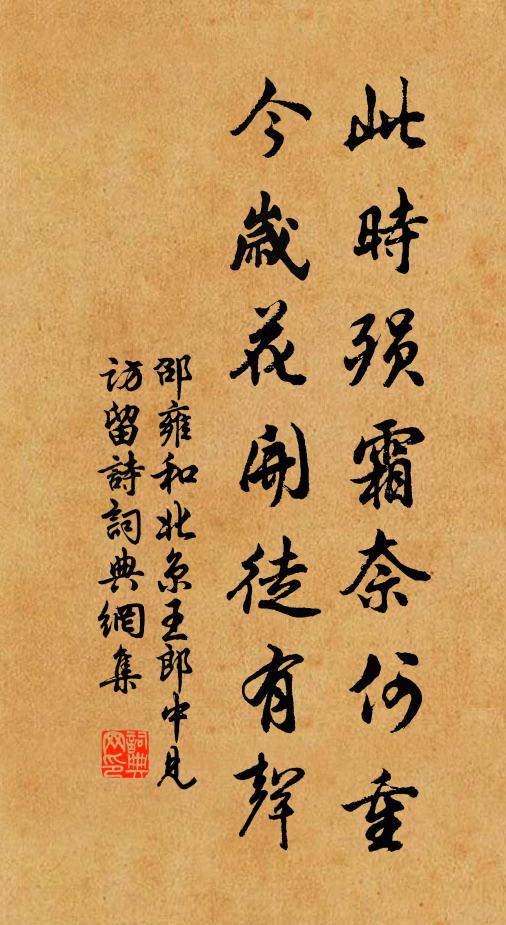 此時殞霜奈何重
今歲花開徒有聲
邵雍和北京王郎中見
訪留詩詞典網集
詞典網印